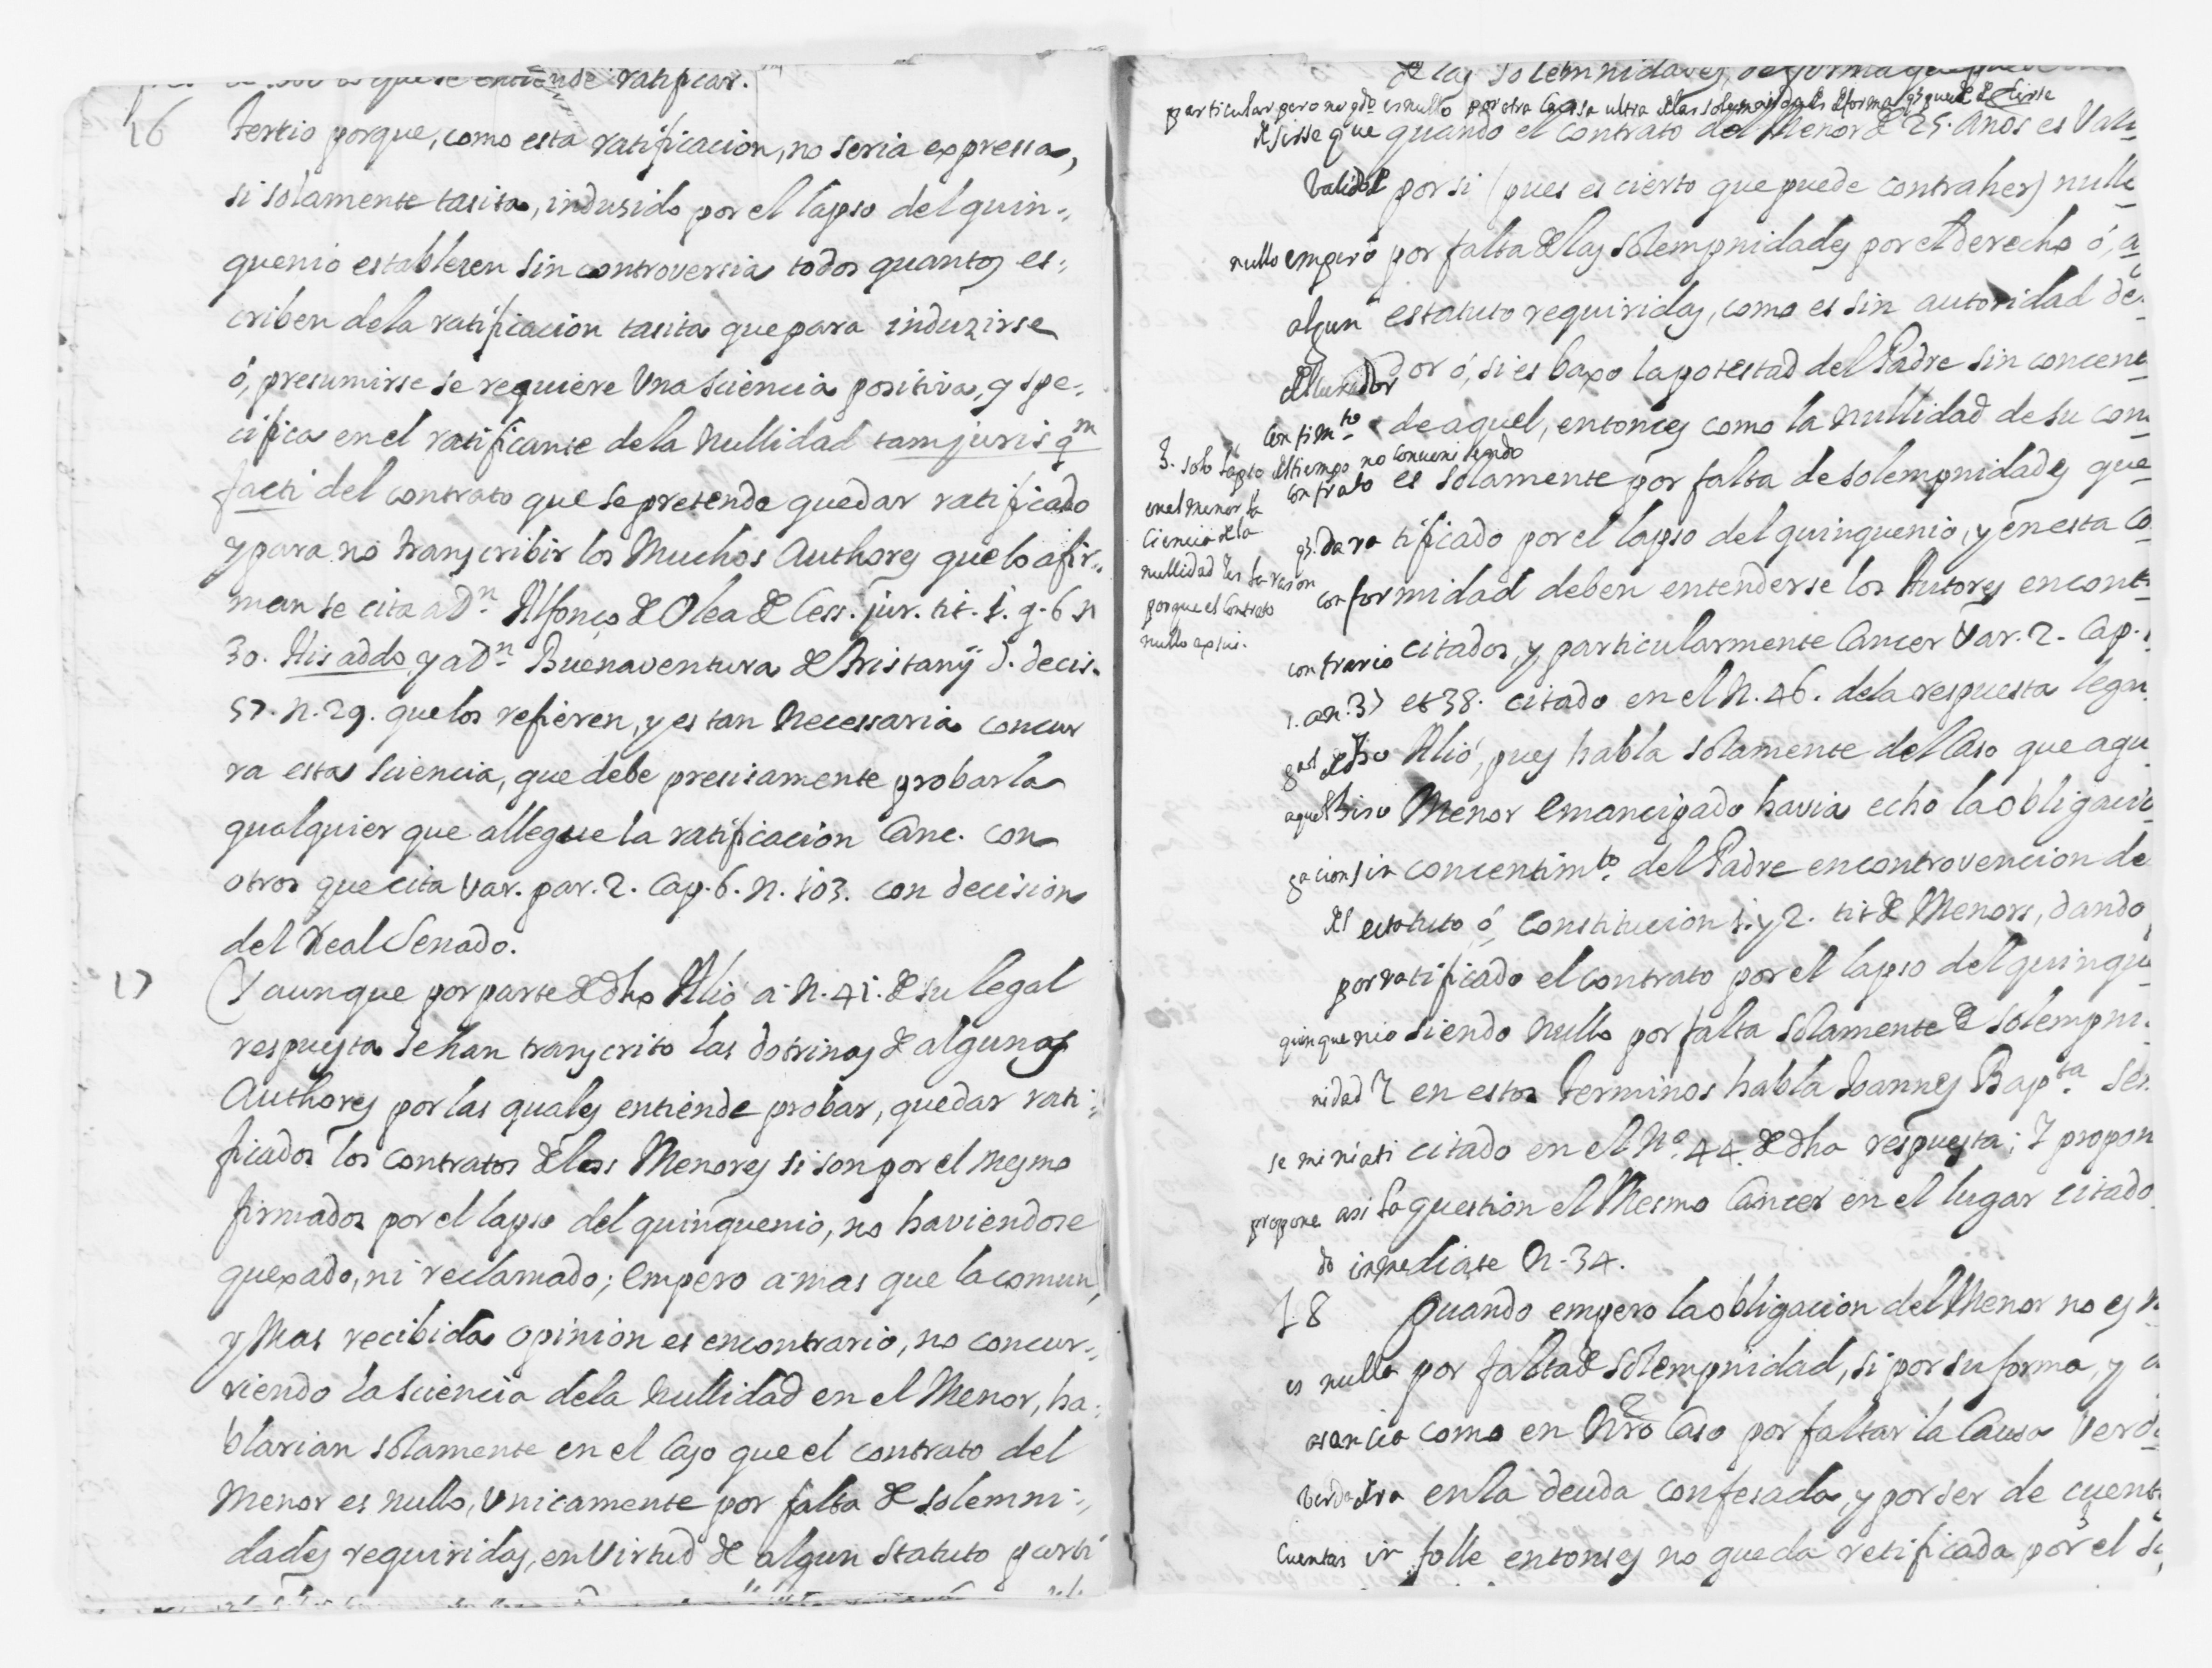 que se entiende ratificar.
16 Tertio porque, como esta ratificacion, no seria expressa,
si solamente tasita, indusida por el lapso del quin-
quenio establesen sin controversia todos quantos es-
criben dela ratificacion tasita que para induzirse
ó, presumirse se requiere Una sciencia positiva, y spe-
cifica en el ratificante dela Nullidad tam juris qm
facti del contrato que se pretende quedar ratificado
y para no transcribir los Muchos Authores que lo afir-
man se cita a Dn. Alfonço de Olea de Cess. jur. tit. 1. q. 6 n
30. His addo, y a Dn. Buenaventura de Tristanÿ d. decis.
57. n. 29. que los refieren, y es tan Necessaria concur
ra esta sciencia, que debe presisamente probarla
qualquier que allegue la ratificacion Canc. con
otros que cita Var. par. 2. Cap. 6. n. 103. con decision
del Real Senado.
17 Y aunque por parte de dho Alió a n. 41. de su legal
respuesta se han transcrito las dotrinas de algunos
Authores por las quales entiende probar, quedar rati-
ficados los contratos de los Menores si son por el mesmo
firmados por el lapso del quinquenio, no haviendose
quexado, ni reclamado; empero a mas que la comun,
y Mas recibida opinion es encontrario, no concur-
riendo la sciencia dela Nullidad en el Menor, ha-
blarian solamente en el Caso que el contrato del
Menor es nullo, Unicamente por falta de solemni-
dades requiridas, en Virtud de algun statuto parti
de las solemnidades,
particular pero no qdo es nullo por otra Causa ultra de las solemnidades de forma q3 puede desirse
desirse que quando el contrato del Menor de 25. Años es Vali
valido por si (pues es cierto que puede contraher) nulle
nullo emperó por falta de las solempnidades por el derecho ó, a
algun estatuto requiridas, como es sin autoridad de
del curador dor ó, si es baxo la potestad del Padre sin concent
Consimto de aquel, entonces como la Nullidad de su con
3. solo lapso del tiempo no conveniendo
contrato es solamente por falta de solempnidades que
en el menor la
Ciencia de la
nullidad Y es la rason
porque el Contrato
nullo ex sui.
q3. da ra tificado por el lapso del quinquenio, y en esta co
conformidad deben entenderse los Autores encont
contrario citados, y particularmente Cancer Var. 2. Cap.
1. a n. 37 et 38. citado en el N. 46. dela respuesta legal
gal de dho Alió, pues habla solamente del Caso que aqu
aquel hiso Menor emancipado havia echo la obligacio
gacion sin concentimto. del Padre encontrovencion de
del estatuto ó, Constitucion 1. y 2. tit de Menors, dando
por ratificado el contrato por el lapso del quinque
quinquenio siendo Nullo por falta solamente de solempni-
nidad Y en estos terminos habla Joannes Bapta. Se
seminiati citado en el No. 44. de dha respuesta; Y propon
propone asi la question el Mesmo Cancer en el lugar citado
do inmediate N. 34.
18 Quando empero la obligacion del Menor no es n
es nulla por falta de solempnidad, si por su forma, y
como en Nro Caso por faltar la Causa Verd
verdadera en la deuda confesada, y por ser de cuent
Cuentas in folle entonses no queda retificada por el